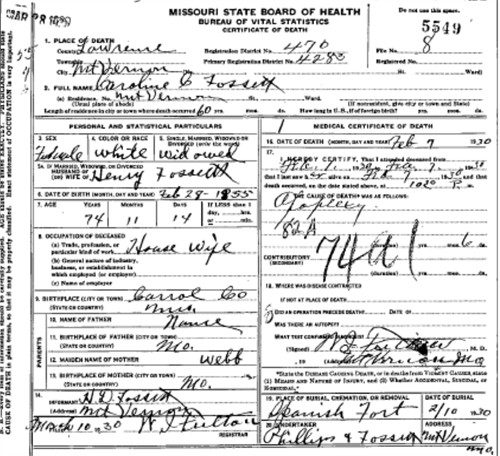 MAR 8 1930
MISSOURI STATE BOARD OF HEALTH
BUREAU OF VITAL STATISTICS
CERTIFICATE OF DEATH
Do not use this space.
5549
1. PLACE OF DEATH
County Lawrence
Registration District No. 470
File No. 8
Township
Primary Registration District No. 4283
City Mt Vernon
No.
St.
Ward
2. FULL NAME Caroline C Fossett
(a) Residence. No. Mt Vernon St. Ward.
(Usual place of abode) (If nonresident, give city or town and State)
Length of residence in city or town where death occurred 60 yrs. mos. ds. How long in U.S., if of foreign birth? yrs. mos. ds.
PERSONAL AND STATISTICAL PARTICULARS
3. SEX
4. COLOR OR RACE
5. SINGLE, MARRIED, WIDOWED OR DIVORCED (write the word)
Female White Widowed
5A. IF MARRIED, WIDOWED, OR DIVORCED
HUSBAND OF
(OR) WIFE OF Henry Fossett
6. DATE OF BIRTH (MONTH, DAY AND YEAR) Feb 28 - 1855
7. AGE YEARS MONTHS DAYS If LESS than 1 day, hrs. or min.
74 11 14
8. OCCUPATION OF DECEASED
(a) Trade, profession, or particular kind of work House Wife
(b) General nature of industry, business, or establishment in which employed (or employer)
(c) Name of employer
9. BIRTHPLACE (CITY OR TOWN) Carrol Co
(STATE OR COUNTRY)
PARENTS
10. NAME OF FATHER
11. BIRTHPLACE OF FATHER (CITY OR TOWN)
(STATE OR COUNTRY) Mo.
12. MAIDEN NAME OF MOTHER Webb
13. BIRTHPLACE OF MOTHER (CITY OR TOWN)
(STATE OR COUNTRY) Mo.
14. INFORMANT H D Fossett
(Address) Mt Vernon
15. FILED Mch 10, 1930 W J Fulton
REGISTRAR
1 MEDICAL CERTIFICATE OF DEATH
16. DATE OF DEATH (MONTH, DAY AND YEAR) Feb 7 1930
17.
I HEREBY CERTIFY, That I attended deceased from
Feb 1, 1930, to Feb 7, 1930
that I last saw alive on Feb 1930 and that
death occurred, on the date stated above, at 1020 P m.
THE CAUSE OF DEATH WAS AS FOLLOWS:
Apoplexy
82A
74a1
(duration) yrs. mos. 6 ds.
CONTRIBUTORY
(SECONDARY)
(duration) yrs. mos. ds.
18. WHERE WAS DISEASE CONTRACTED
IF NOT AT PLACE OF DEATH?
DID AN OPERATION PRECEDE DEATH? DATE OF
WAS THERE AN AUTOPSY?
WHAT TEST CONFIRMED DIAGNOSIS?
(Signed) M. D.
Mt Vernon Mo
*State the DISEASE CAUSING DEATH, or in deaths from VIOLENT CAUSES, state
(1) MEANS AND NATURE OF INJURY, and (2) Whether ACCIDENTAL, SUICIDAL, or HOMICIDAL.
19. PLACE OF BURIAL, CREMATION, OR REMOVAL
DATE OF BURIAL
Spanish Fort 2/10 1930
20. UNDERTAKER
ADDRESS
Phillips & Fossett Mt Vernon Mo.